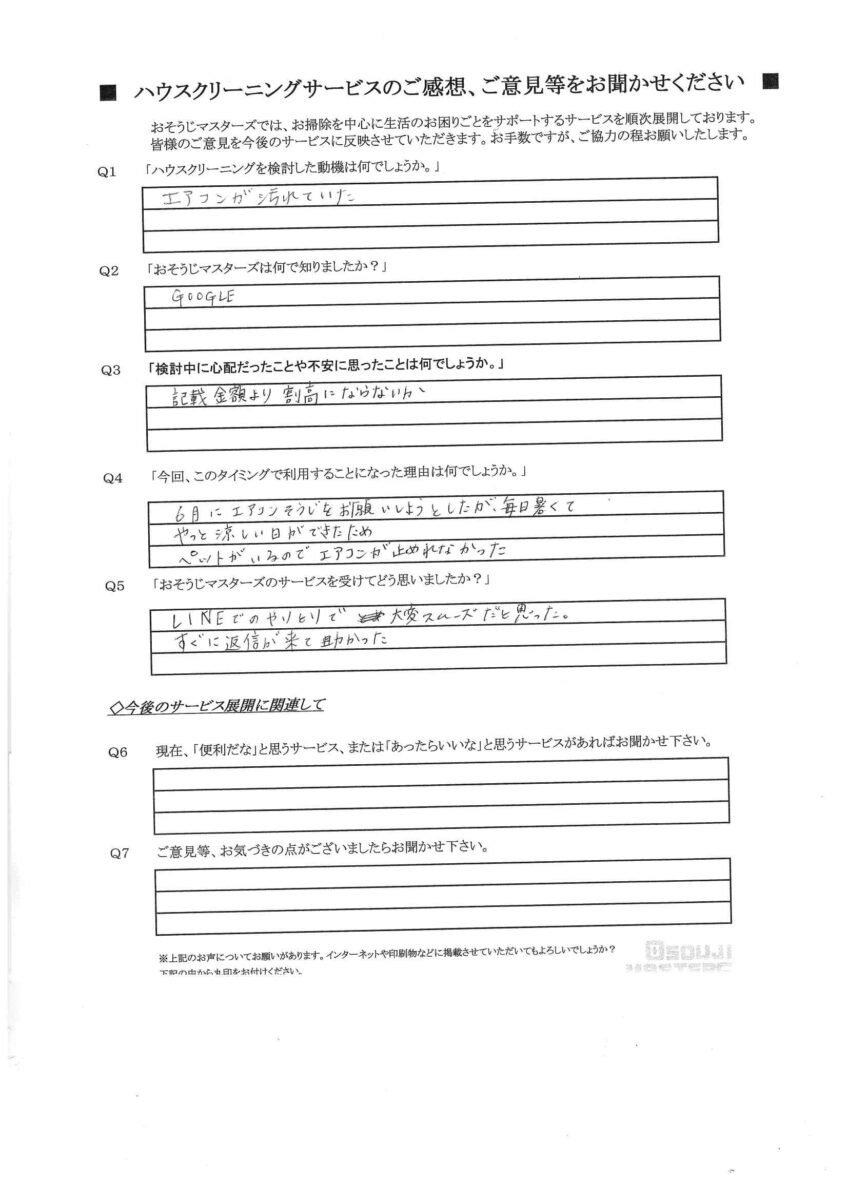 ■ ハウスクリーニングサービスのご感想、ご意見等をお聞かせください ■
おそうじマスターズでは、お掃除を中心に生活のお困りごとをサポートするサービスを順次展開しております。
皆様のご意見を今後のサービスに反映させていただきます。お手数ですが、ご協力の程お願いしたします。
Q1 「ハウスクリーニングを検討した動機は何でしょうか。」
エアコンが汚れていた
Q2 「おそうじマスターズは何で知りましたか？」
GOOGLE
Q3 「検討中に心配だったことや不安に思ったことは何でしょうか。」
記載金額より割高にならないか
Q4 「今回、このタイミングで利用することになった理由は何でしょうか。」
6月にエアコンそうじをお願いしようとしたが、毎日暑くて
やっと涼しい日ができたため
ペットがいるのでエアコンが止めれなかった
Q5 「おそうじマスターズのサービスを受けてどう思いましたか？」
LINEでのやりとりで 大変スムーズだと思った。
すぐに返信が来て助かった
◇今後のサービス展開に関連して
Q6 現在、「便利だな」と思うサービス、または「あったらいいな」と思うサービスがあればお聞かせ下さい。
Q7 ご意見等、お気づきの点がございましたらお聞かせ下さい。
※上記のお声についてお願いがあります。インターネットや印刷物などに掲載させていただいてもよろしいでしょうか？
下記の中から丸印をお付けください。
OSOUJI